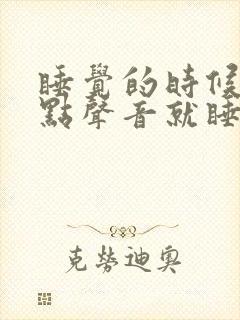 睡覺的時候
點聲音就睡
克勞迪奧